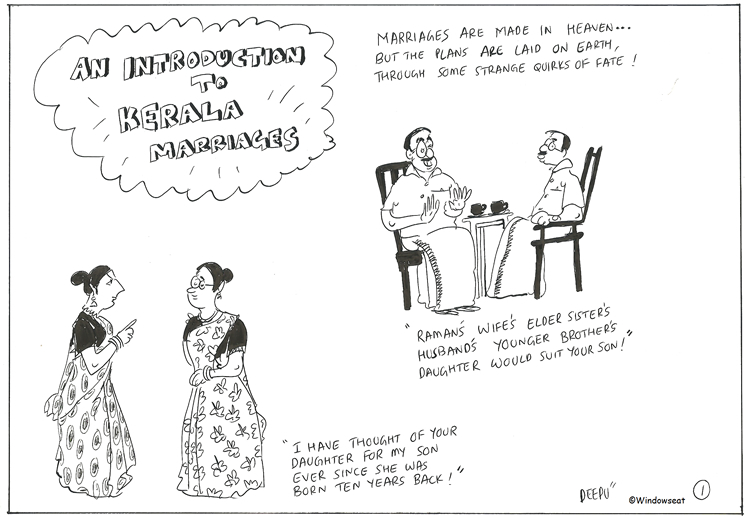 AN INTRODUCTION
TO
KERALA
MARRIAGES
MARRIAGES ARE MADE IN HEAVEN...
BUT THE PLANS ARE LAID ON EARTH,
THROUGH SOME STRANGE QUIRKS OF FATE!
"RAMAN'S WIFE'S ELDER SISTER'S
HUSBAND'S YOUNGER BROTHER'S
DAUGHTER WOULD SUIT YOUR SON!"
"I HAVE THOUGHT OF YOUR
DAUGHTER FOR MY SON
EVER SINCE SHE WAS
BORN TEN YEARS BACK!"
DEEPU"
©Windowseat
1